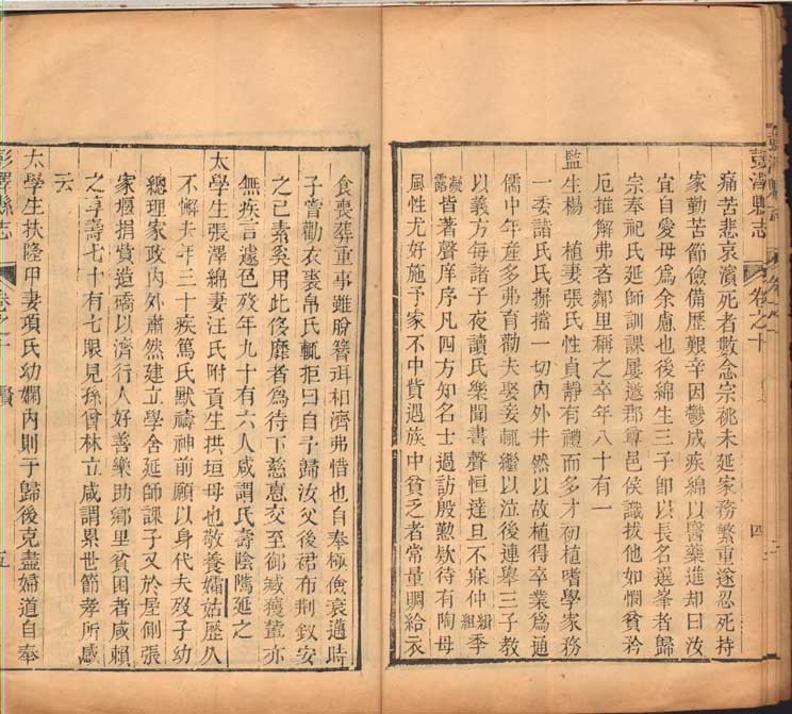 彭澤縣志 卷之十 四
痛苦悲哀濱死者數念宗祧未延家務繁重遂忍死持
家勤苦節儉備歷艱辛因鬱成疾綿以醫藥進却曰汝
宜自愛母爲余慮也後綿生三子卽以長名選峯者歸
宗奉祀氏延師訓課屢邀郡尊邑侯識拔他如憫貧矜
厄推解弗吝鄰里稱之卒年八十有一
監生楊 植妻張氏性貞靜有禮而多才初植嗜學家務
一委諸氏氏摒擋一切內外井然以故植得卒業爲通
儒中年產多弗育勸夫娶妾輒繼以泣後連舉三子教
以義方每諸子夜讀氏樂聞書聲恒達旦不寐仲緝組季
凝露皆著聲庠序凡四方知名士過訪殷懃欵待有陶母
風性尤好施予家不中貲遇族中貧乏者常量賙給衣
食喪葬重事雖脫簪珥相濟弗惜也自奉極儉衰邁時
子嘗勸衣裘帛氏輒拒曰自予歸汝父後裙布荆釵安
之已素奚用此侈靡者爲待下慈惠交至御臧獲輩亦
無疾言遽色歿年九十有六人咸謂氏壽陰隲延之
太學生張澤綿妻汪氏附貢生拱垣母也敬養孀姑歷久
不懈夫年三十疾篤氏默禱神前願以身代夫歿子幼
總理家政內外肅然建立學舍延師課子又於屋側張
家堰捐貲造礄以濟行人好善樂助鄉里貧困者咸賴
之享壽七十有七眼見孫曾林立咸謂累世節孝所感
云
太學生扶隆甲妻項氏幼嫻內則于歸後克盡婦道自奉
彭澤縣志 卷之十 五